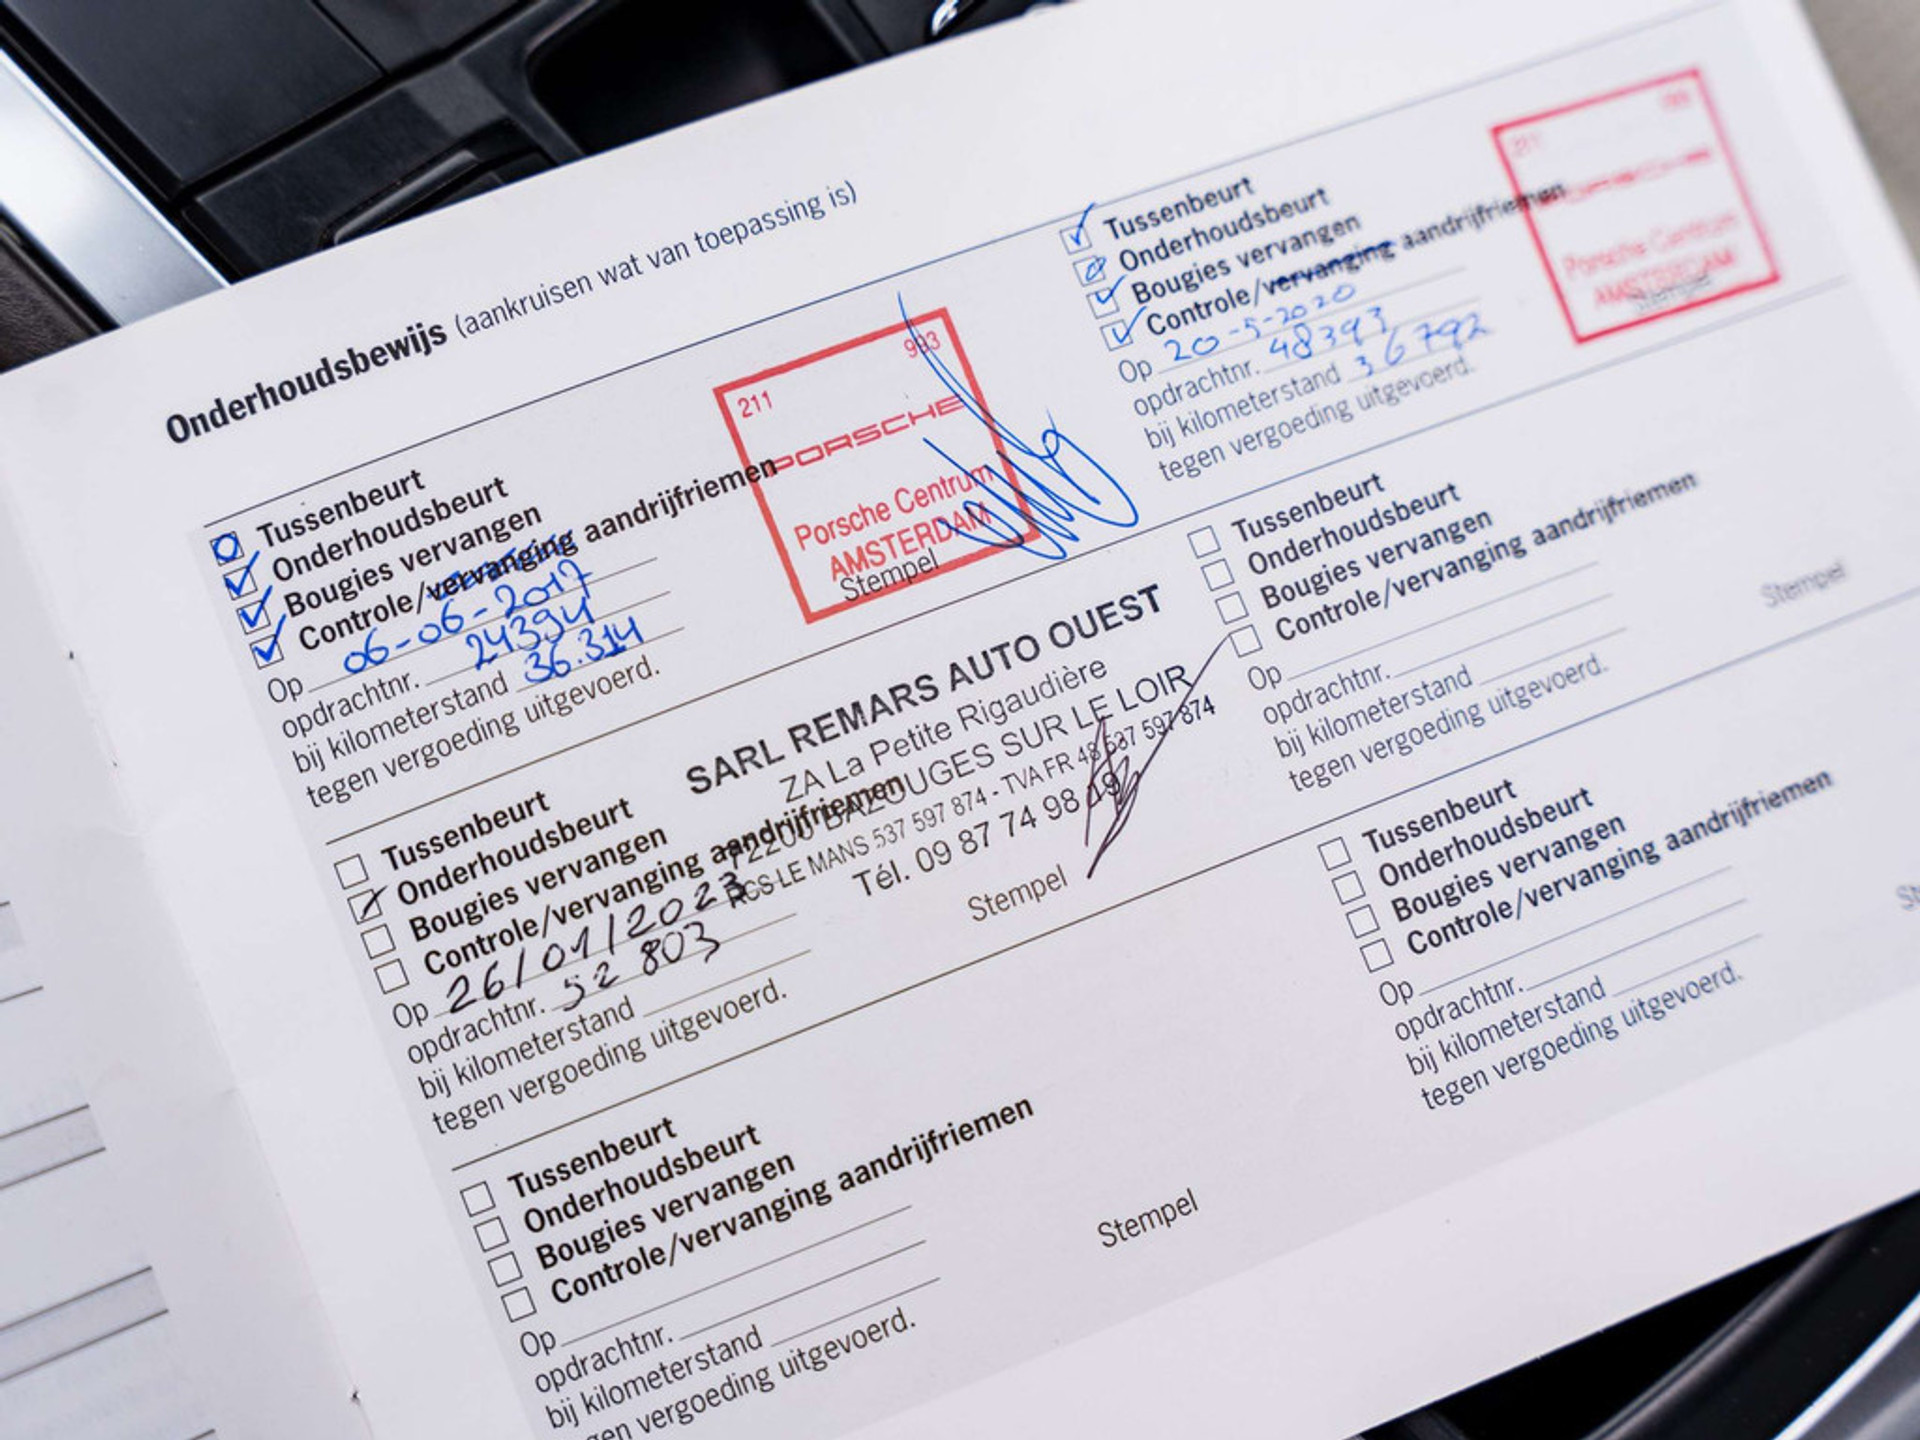 Onderhoudsbewijs (aankruisen wat van toepassing is)
Tussenbeurt
Onderhoudsbeurt
Bougies vervangen
Controle/vervanging aandrijfriemen
Op 06-06-2017
opdrachtnr. 24394
bij kilometerstand 36.314
tegen vergoeding uitgevoerd.
211 993
PORSCHE
Porsche Centrum
AMSTERDAM
Stempel
Tussenbeurt
Onderhoudsbeurt
Bougies vervangen
Controle/vervanging aandrijfriemen
Op 20-5-2020
opdrachtnr. 48393
bij kilometerstand 36792
tegen vergoeding uitgevoerd.
211
Porsche Centrum
AMSTERDAM
Stempel
Tussenbeurt
Onderhoudsbeurt
Bougies vervangen
Controle/vervanging aandrijfriemen
Op 26/01/2023
opdrachtnr. 52 803
bij kilometerstand
tegen vergoeding uitgevoerd.
SARL REMARS AUTO OUEST
ZA La Petite Rigaudière
72200 BAZOUGES SUR LE LOIR
RCS LE MANS 537 597 874 - TVA FR 48 537 597 874
Tél. 09 87 74 98 49
Stempel
Tussenbeurt
Onderhoudsbeurt
Bougies vervangen
Controle/vervanging aandrijfriemen
Op
opdrachtnr.
bij kilometerstand
tegen vergoeding uitgevoerd.
Stempel
Tussenbeurt
Onderhoudsbeurt
Bougies vervangen
Controle/vervanging aandrijfriemen
Op
opdrachtnr.
bij kilometerstand
gen vergoeding uitgevoerd.
Stempel
Tussenbeurt
Onderhoudsbeurt
Bougies vervangen
Controle/vervanging aandrijfriemen
Op
opdrachtnr.
bij kilometerstand
tegen vergoeding uitgevoerd.